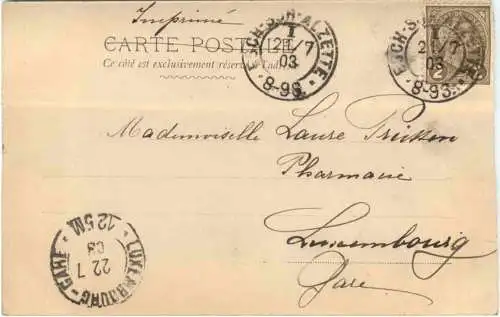 Imprimé
CARTE POSTALE
Ce côté est exclusivement réservé à l'adresse
ESCH-SUR-ALZETTE
I
21/7
03
8-9S.
ESCH-S-UR-ALZETTE
I
21/7
03
8-9S.
2
Mademoiselle Laure
Pharmacie
Luxembourg
Gare
LUXEMBOURG-GARE
22 7
03
12 5M